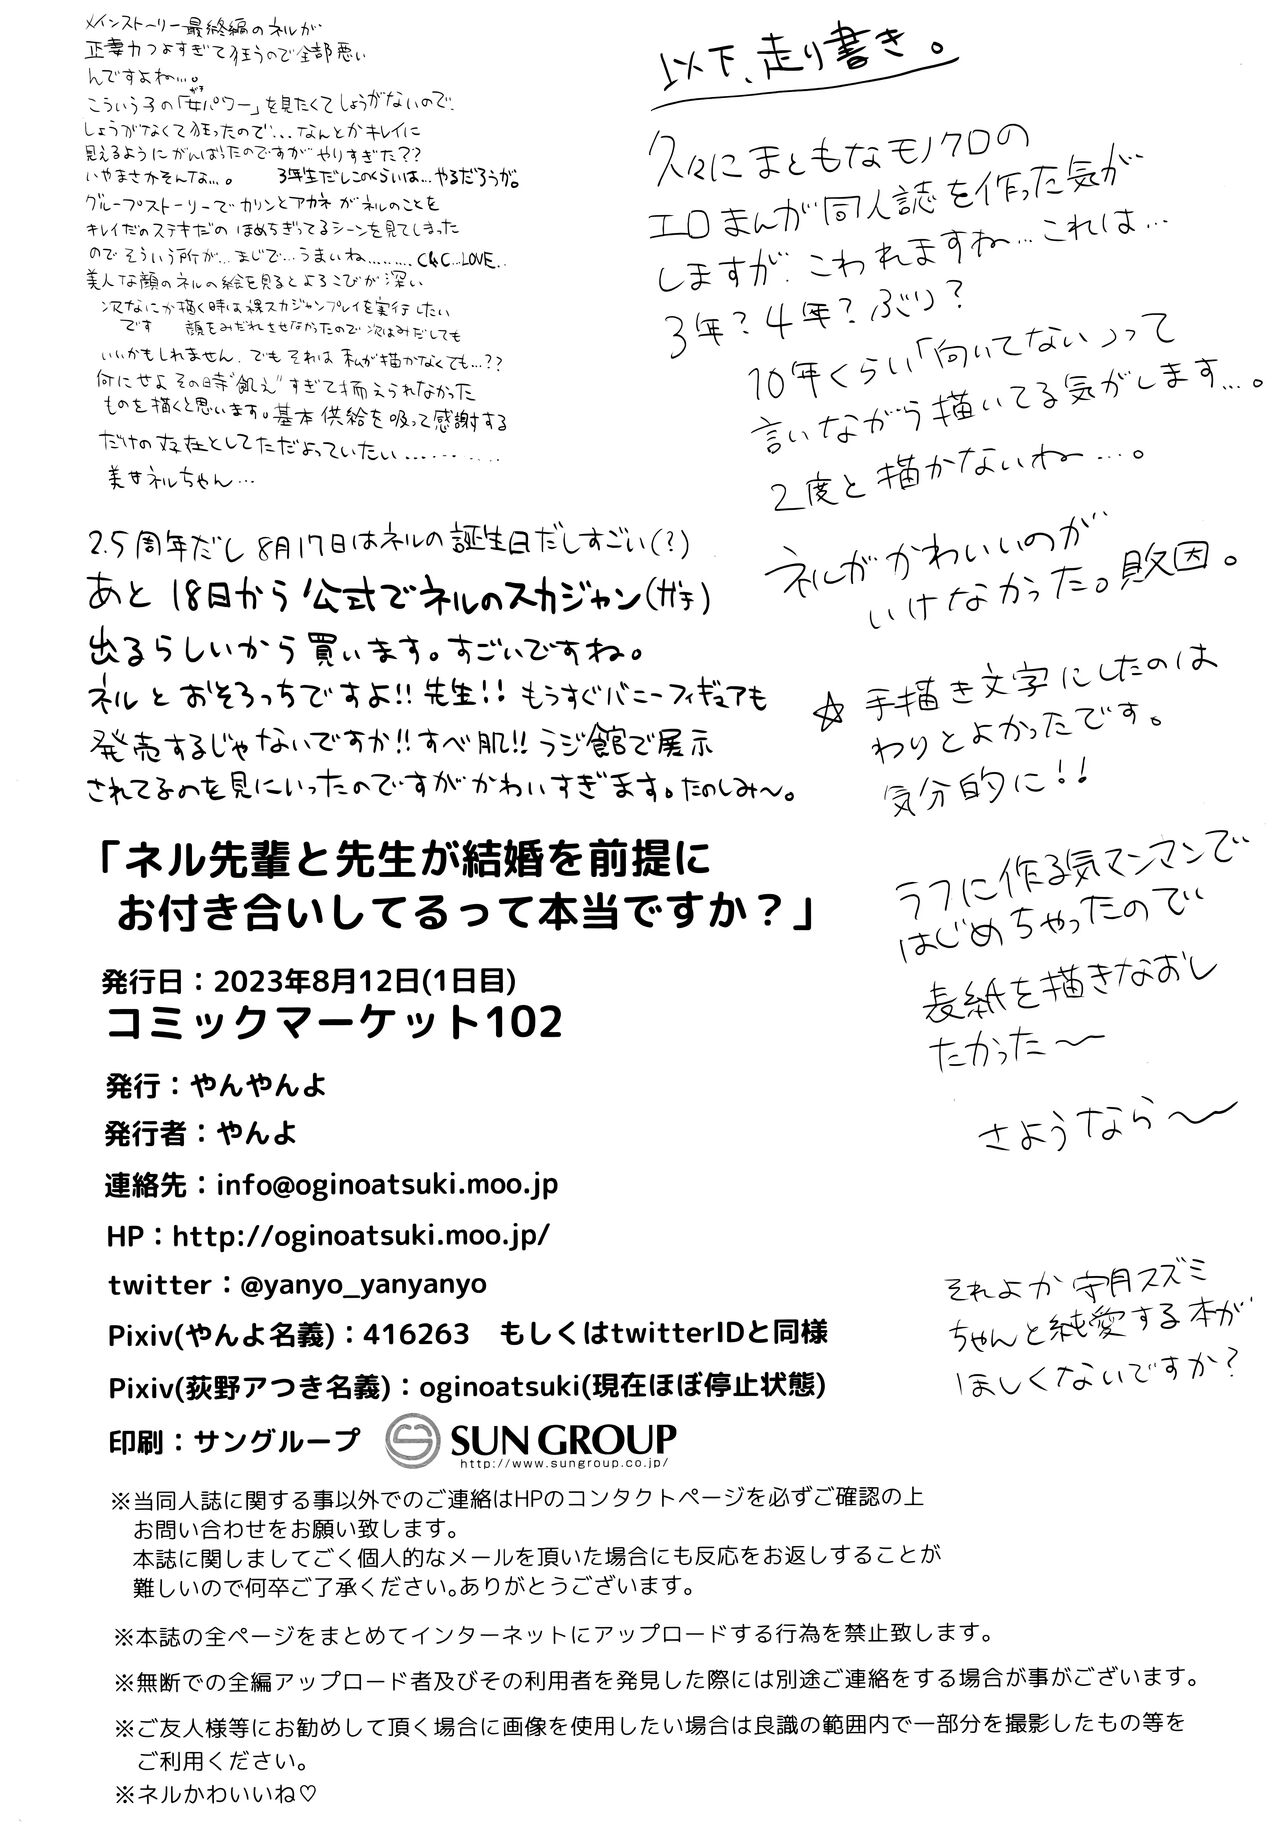 以下、走り書き。
久々にまともなモノクロの
エロまんが同人誌を作った気が
しますが、こわれますね…これは…
3年?4年?ぶり?
10年くらい「向いてない」って
言いながら描いてる気がします…。
2度と描かないね…。
ネルがかわいいのが
いけなかった。敗因。
☆手描き文字にしたのは
わりとよかったです。
気分的に!!
ラフに作る気マンマンで
はじめちゃったので
表紙を描きなおし
たかった〜
さようなら〜
それよか守月スズミ
ちゃんと純愛する本が
ほしくないですか?
メインストーリー最終編のネルが
正妻力つよすぎて狂うので全部悪い
んですよね…。
こういう子の「女パワー」を見たくてしょうがないので、
しょうがなくて狂ったので...なんとかキレイに
見えるようにがんばったのですがやりすぎた??
いやまさかそんな…。 3年生だしこのくらいは…やるだろうが。
グループストーリーでカリンとアカネがネルのことを
キレイだのステキだのほめちぎってるシーンを見てしまった
のでそういう所が…まじで…うまいね………C&C…LOVE…
美人な顔のネルの絵を見るとよろこびが深い
次なにか描く時は裸スカジャンプレイを実行したい
です 顔をみだれさせなかったので次はみだしても
いいかもしれません、でもそれは私が描かなくても…??
何にせよその時"飢え"すぎて抑えられなかった
ものを描くと思います。基本供給を吸って感謝する
だけの存在としてただよっていたい…………
美女ネルちゃん…
2.5周年だし8月17日はネルの誕生日だしすごい(?)
あと18日から公式でネルのスカジャン(ガチ)
出るらしいから買います。すごいですね。
ネルとおそろっちですよ!!先生!!もうすぐバニーフィギュアも
発売するじゃないですか!!すべ肌!!ラジ館で展示
されてるのを見にいったのですがかわいすぎます。たのしみ〜。
「ネル先輩と先生が結婚を前提に
お付き合いしてるって本当ですか?」
発行日:2023年8月12日(1日目)
コミックマーケット102
発行:やんやんよ
発行者:やんよ
連絡先:info@oginoatsuki.moo.jp
HP:http://oginoatsuki.moo.jp/
twitter:@yanyo_yanyanyo
Pixiv(やんよ名義):416263 もしくはtwitterIDと同様
Pixiv(荻野アつき名義):oginoatsuki(現在ほぼ停止状態)
印刷:サングループ SUN GROUP
http://www.sungroup.co.jp/
※当同人誌に関する事以外でのご連絡はHPのコンタクトページを必ずご確認の上
お問い合わせをお願い致します。
本誌に関しましてごく個人的なメールを頂いた場合にも反応をお返しすることが
難しいので何卒ご了承ください。ありがとうございます。
※本誌の全ページをまとめてインターネットにアップロードする行為を禁止致します。
※無断での全編アップロード者及びその利用者を発見した際には別途ご連絡をする場合が事がございます。
※ご友人様等にお勧めして頂く場合に画像を使用したい場合は良識の範囲内で一部分を撮影したもの等を
ご利用ください。
※ネルかわいいね♡